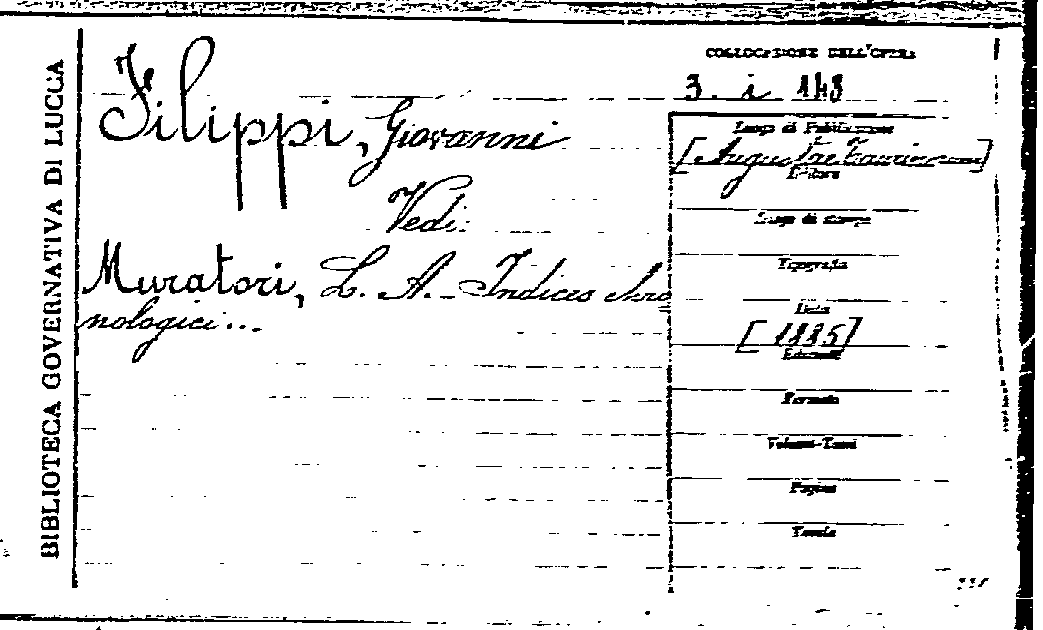 BIBLIOTECA GOVERNATIVA DI LUCCA
COLLOCAZIONE DELL'OPERA
3. i 148
Filippi, Giovanni
Vedi:
Muratori, L. A. - Indices chro
nologici...
Luogo di Pubblicazione
[Augustae Taurinorum]
Editore
Luogo di stampa
Tipografia
Data
[1885]
Edizione
Formato
Volumi-Tomi
Pagine
Tavole